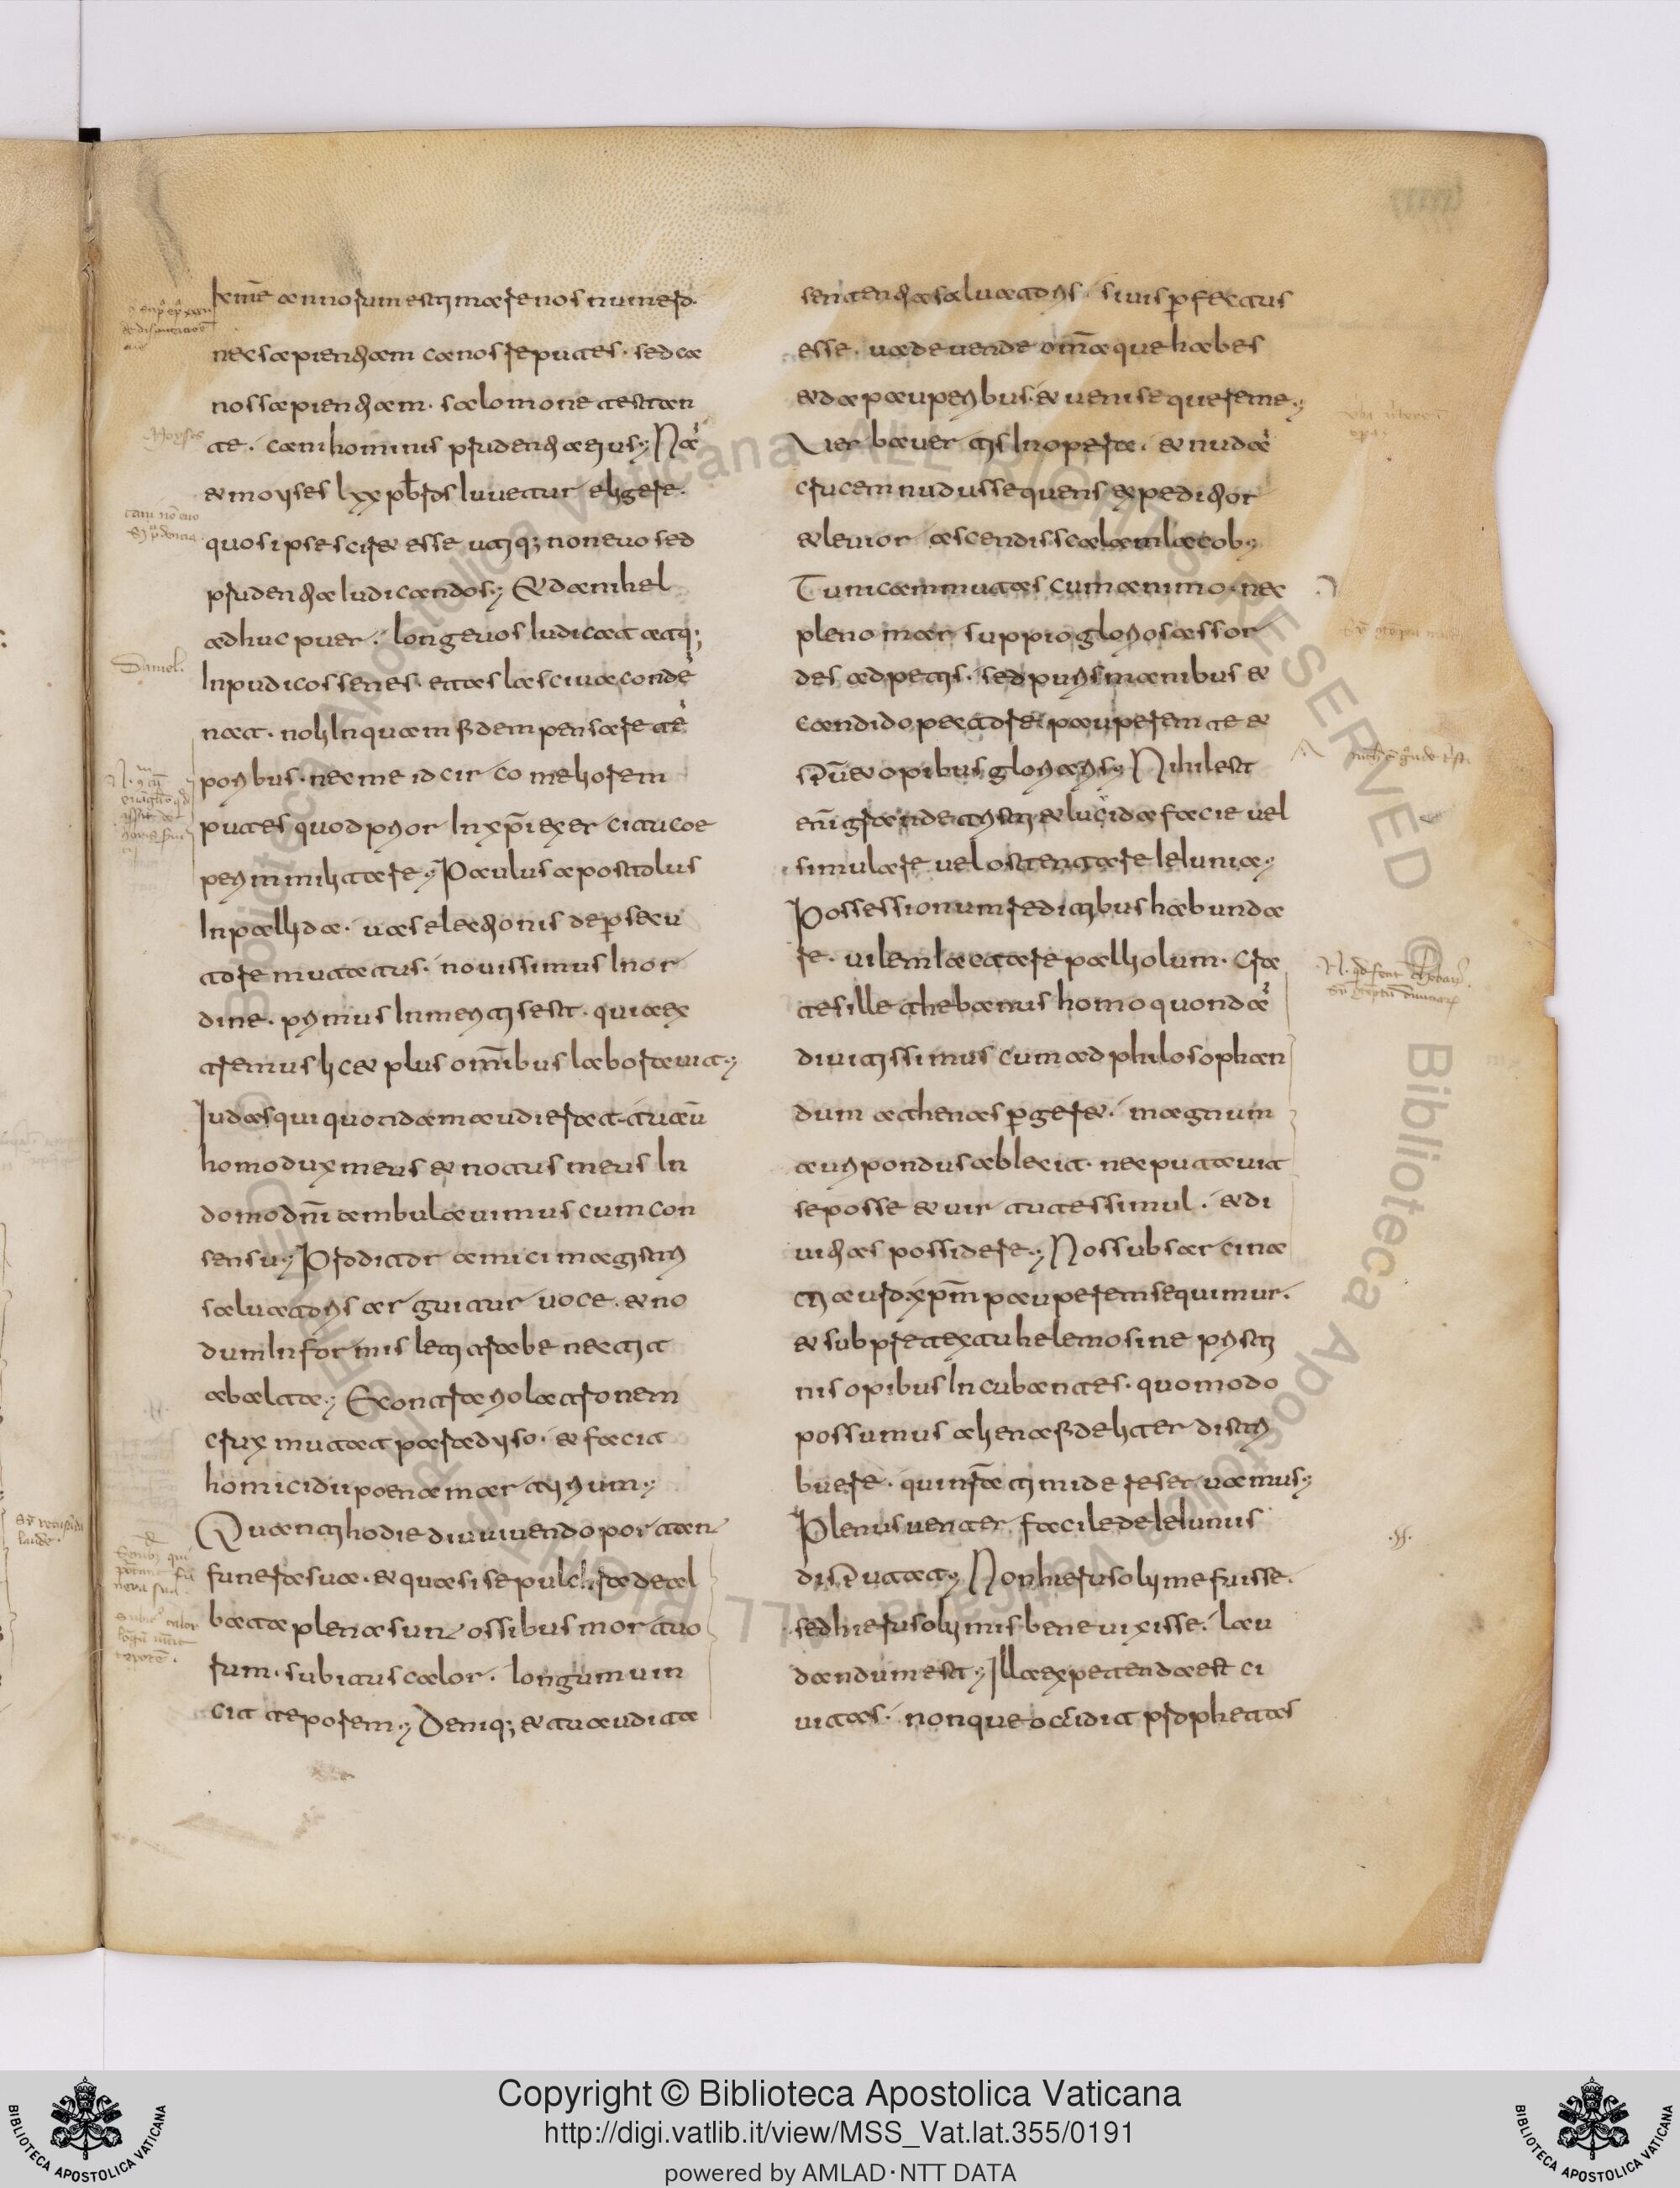 teme annorum estimare nos numero·
nec sapientiam canos reputes· sed ca
nos sapientiam· salomone testan
te· cani hominis prudentia eius; Nā
& moyses lxx pb̄ros iuuetur eligere·
quos ipse scir& esse utiq; non euo sed
prudentia iudicandos; & danihel
adhuc puer· longeuos iudicat atq;
inpudicos senes· etas lasciua conde
nat· noli inquam fidem pensare te
poribus· nec me idcirco meliorem
putes quod prior in xp̄i exercitu coe
perim militare; Paulus apostolus
in pallida· uas electionis de persecu
tore mutatus· nouissimus in or
dine· primus in meritis est· quia ex
tremus lic& plus om̄ibus laborauit;
Iudas qui quondam audierat· tu aū
homo dux meus & notus meus in
domo dn̄i ambulauimus cum con
sensu; Proditor amici magistri
saluatoris arguitur uoce· & no
dum informis leti trabe nectit
ab alta; E contra ri o latronem
crux mutat paradyso· & facit
homicidii poena martyrium;
Quanti hodie diu uiuendo portan
funera sua· & quasi sepulchra deal
bata plena sun ossibus mortuo
rum· subitus calor· longum uin
cit teporem; Deniq; & tu audita
sententia saluatoris· si uis perfectus
esse· uade uende om̄a que habes
& da pauperibus· & ueni sequere me;
Uerba uertis in opera· & nudā
crucem nudus sequens expeditior
& leuior ascendis scalam iacob;
Tunicam mutas cum animo· nec
pleno marsuppio gloriosas sor
des adpetis· sed puris manibus &
candido pectore pauperem te &
sp̄u & opibus gloriaris; Nihil est
enī grande tristi & lucida facie uel
simulare uel ostentare ieiunia;
Possessionum reditibus habunda
re· uilem iactare palliolum· Cra
tes ille thebanus homo quondā
diuitissimus cum ad philosophan
dum athenas perger&· magnum
auri pondus abiecit· nec putauit
se posse & uirtutes simul· & di
uitias possidere; Nos subsarcina
ti auro xp̄m pauperem sequimur·
& sub pretextu helemosine pristi
nis opibus incubantes· quomodo
possumus aliena fideliter distri
buere· qui nr̄a timide reseruamus;
Plenus uenter facile de ieiuniis
disputat; Non hierusolyme fuisse·
sed hierusolymis bene uixisse· lau
dandum est; Illa expetenda est ci
uitas· non que occidit prophetas
Moyses
Daniel·
Copyright © Biblioteca Apostolica Vaticana
http://digi.vatlib.it/view/MSS_Vat.lat.355/0191
powered by AMLAD·NTT DATA
BIBLIOTECA APOSTOLICA VATICANA
BIBLIOTECA APOSTOLICA VATICANA